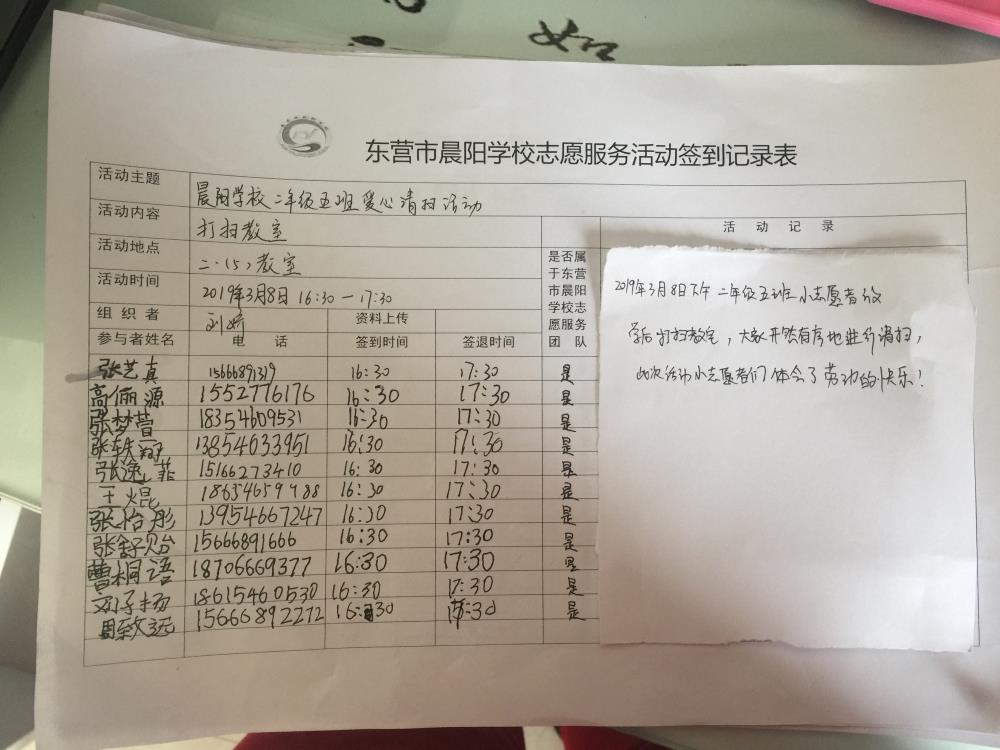 如
东营市晨阳学校志愿服务活动签到记录表
活动主题 晨阳学校二年级五班爱心清扫活动
活动内容 打扫教室 活动记录
活动地点 二·(5)教室 是否属于东营市晨阳学校志愿服务团队
活动时间 2019年3月8日 16:30—17:30
组织者 刘娇 资料上传
参与者姓名 电话 签到时间 签退时间
张艺真 15666891319 16:30 17:30 是
高俪源 1552776176 16:30 17:30 是
张梦萱 18354609531 16:30 17:30 是
张轶翔 13854633951 16:30 17:30 是
张逸菲 15166273410 16:30 17:30 是
王焜 18654659788 16:30 17:30 是
张怡彤 13954667247 16:30 17:30 是
张舒贻 15666891666 16:30 17:30 是
曹桐语 18706669377 16:30 17:30 是
刘子扬 18615460530 16:30 17:30 是
周致远 15666892272 16:30 17:30 是
2019年3月8日下午 二年级五班小志愿者放
学后打扫教室，大家井然有序地进行清扫，
此次活动小志愿者们体会了劳动的快乐！